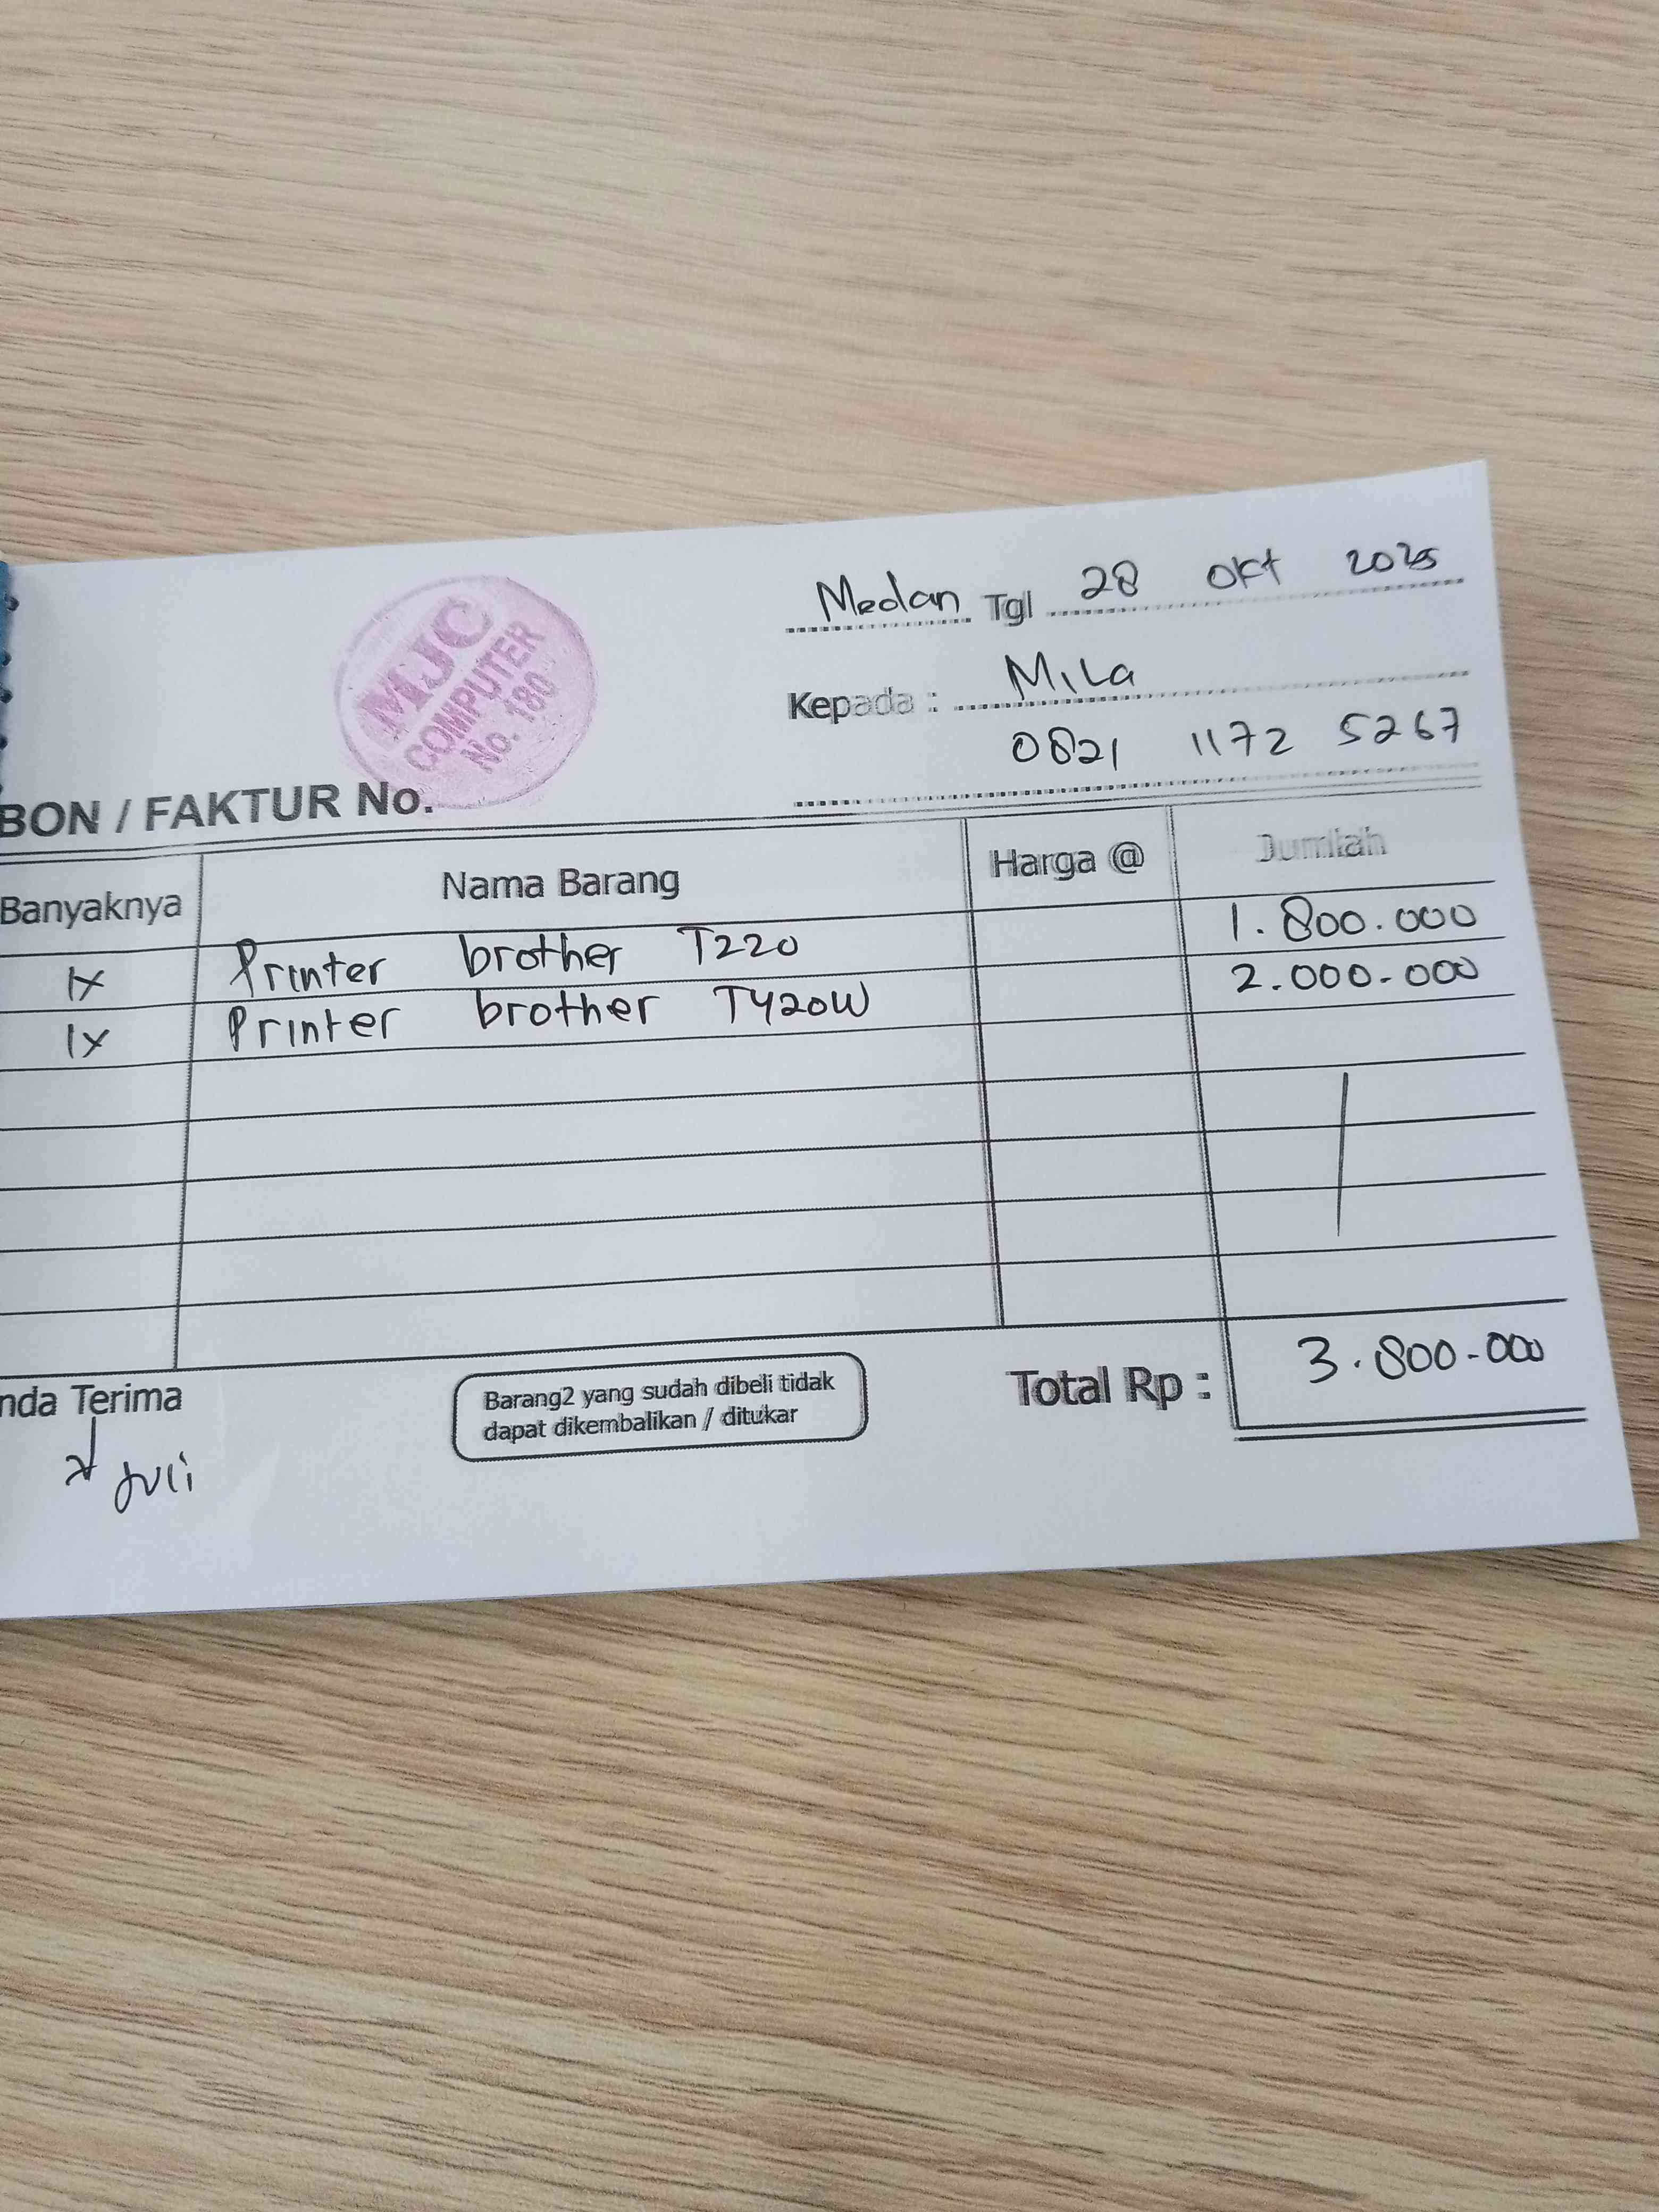 MJC
COMPUTER
No. 180
Medan Tgl 28 Okt 2025
Kepada : Mila
0821 1172 5267
BON / FAKTUR No.
Banyaknya Nama Barang Harga @ Jumlah
1x Printer brother T220 1.800.000
1x Printer brother T420W 2.000.000
nda Terima
Juli
Barang2 yang sudah dibeli tidak
dapat dikembalikan / ditukar
Total Rp : 3.800.000